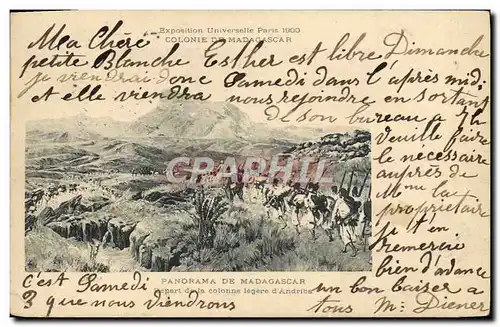 Exposition Universelle Paris 1900
COLONIE DE MADAGASCAR
Ma Chère
petite Blanche
Esther est libre Dimanche
je viendrai donc Samedi dans l'après midi
et elle viendra nous rejoindre en sortant
de son bureau a 7h
Veuille faire
le nécessaire
auprès de
Mme la
proprietaire
je t'en
remercie
bien d'avance
un bon baiser a
tous M. Diener
CPARAMA.COM
PANORAMA DE MADAGASCAR
Départ de la colonne légère d'Andriba
C'est Samedi
3 que nous viendrons